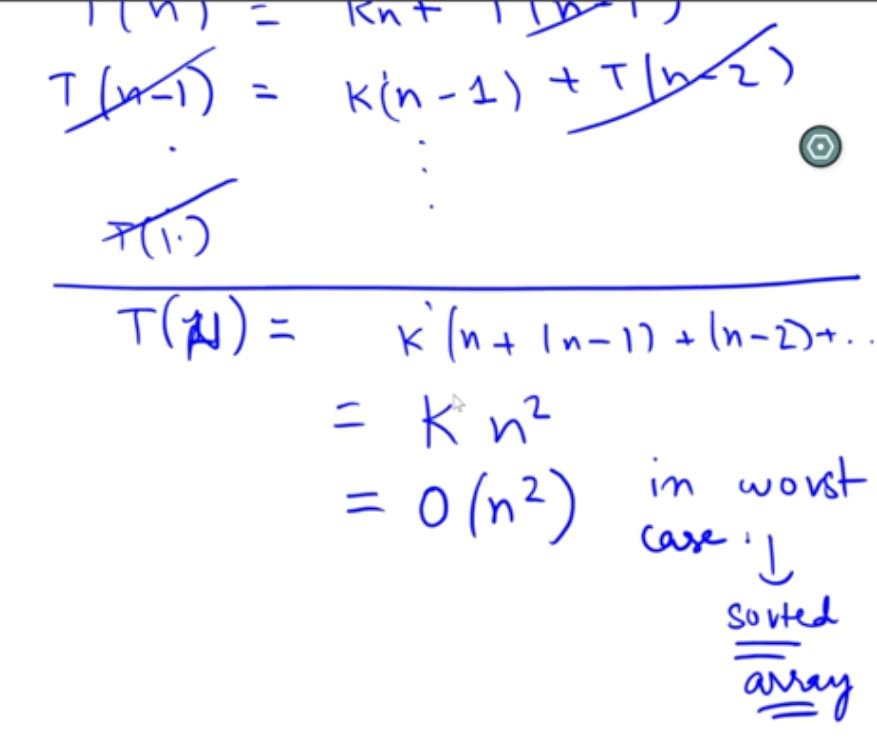 T(n) = Kn + T(n-1)
T(n-1) = K(n-1) + T(n-2)
.
⋮
T(1)
T(n) = K(n + (n-1) + (n-2)+..
= K n²
= O(n²) in worst
case. ↓
sorted
array